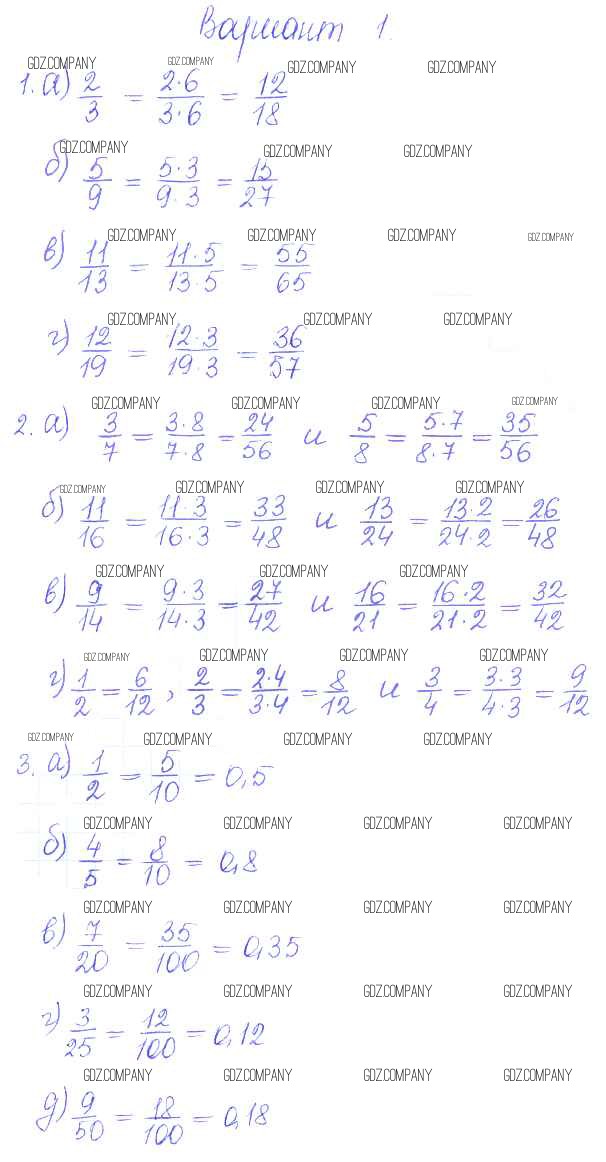 Вариант 1.
GDZ.COMPANY GDZ.COMPANY GDZ.COMPANY GDZ.COMPANY
1. а) 2/3 = 2·6/3·6 = 12/18
GDZ.COMPANY GDZ.COMPANY GDZ.COMPANY
б) 5/9 = 5·3/9·3 = 15/27
GDZ.COMPANY GDZ.COMPANY GDZ.COMPANY GDZ.COMPANY
в) 11/13 = 11·5/13·5 = 55/65
GDZ.COMPANY GDZ.COMPANY GDZ.COMPANY
г) 12/19 = 12·3/19·3 = 36/57
GDZ.COMPANY GDZ.COMPANY GDZ.COMPANY GDZ.COMPANY
2. а) 3/7 = 3·8/7·8 = 24/56 и 5/8 = 5·7/8·7 = 35/56
GDZ.COMPANY GDZ.COMPANY GDZ.COMPANY GDZ.COMPANY
б) 11/16 = 11·3/16·3 = 33/48 и 13/24 = 13·2/24·2 = 26/48
GDZ.COMPANY GDZ.COMPANY GDZ.COMPANY
в) 9/14 = 9·3/14·3 = 27/42 и 16/21 = 16·2/21·2 = 32/42
GDZ.COMPANY GDZ.COMPANY GDZ.COMPANY GDZ.COMPANY
г) 1/2 = 6/12, 2/3 = 2·4/3·4 = 8/12 и 3/4 = 3·3/4·3 = 9/12
GDZ.COMPANY GDZ.COMPANY GDZ.COMPANY GDZ.COMPANY
3. а) 1/2 = 5/10 = 0,5
GDZ.COMPANY GDZ.COMPANY GDZ.COMPANY GDZ.COMPANY
б) 4/5 = 8/10 = 0,8
GDZ.COMPANY GDZ.COMPANY GDZ.COMPANY GDZ.COMPANY
в) 7/20 = 35/100 = 0,35
GDZ.COMPANY GDZ.COMPANY GDZ.COMPANY GDZ.COMPANY
г) 3/25 = 12/100 = 0,12
GDZ.COMPANY GDZ.COMPANY GDZ.COMPANY GDZ.COMPANY
д) 9/50 = 18/100 = 0,18